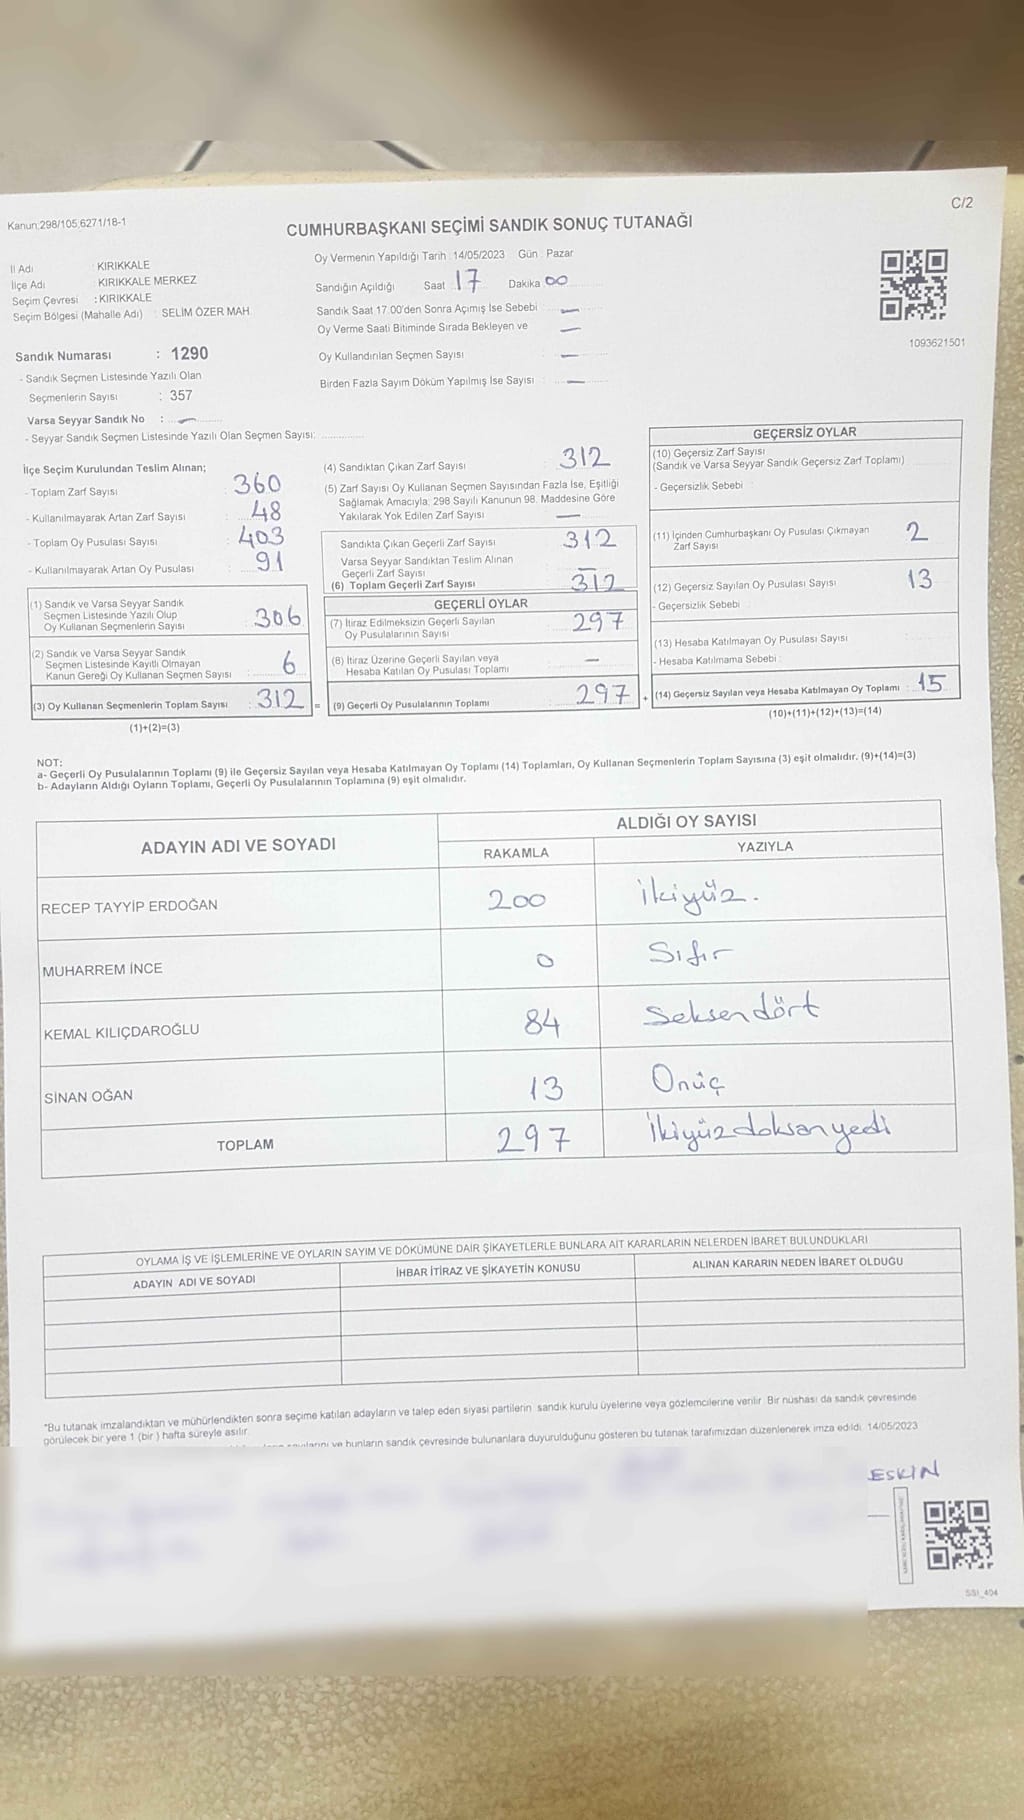 Kanun;298/105,6271/18-1
C/2
CUMHURBAŞKANI SEÇİMİ SANDIK SONUÇ TUTANAĞI
İl Adı : KIRIKKALE
İlçe Adı : KIRIKKALE MERKEZ
Seçim Çevresi : KIRIKKALE
Seçim Bölgesi (Mahalle Adı) : SELİM ÖZER MAH.
Oy Vermenin Yapıldığı Tarih : 14/05/2023 Gün : Pazar
Sandığın Açıldığı Saat 17 Dakika 00
Sandık Saat 17.00'den Sonra Açımış İse Sebebi : —
Oy Verme Saati Bitiminde Sırada Bekleyen ve —
Oy Kullandırılan Seçmen Sayısı : —
Birden Fazla Sayım Döküm Yapılmış İse Sayısı : —
1093621501
Sandık Numarası : 1290
- Sandık Seçmen Listesinde Yazılı Olan
Seçmenlerin Sayısı : 357
Varsa Seyyar Sandık No : —
- Seyyar Sandık Seçmen Listesinde Yazılı Olan Seçmen Sayısı:
İlçe Seçim Kurulundan Teslim Alınan;
- Toplam Zarf Sayısı : 360
- Kullanılmayarak Artan Zarf Sayısı : 48
- Toplam Oy Pusulası Sayısı : 403
- Kullanılmayarak Artan Oy Pusulası : 91
(1) Sandık ve Varsa Seyyar Sandık
Seçmen Listesinde Yazılı Olup
Oy Kullanan Seçmenlerin Sayısı : 306
(2) Sandık ve Varsa Seyyar Sandık
Seçmen Listesinde Kayıtlı Olmayan
Kanun Gereği Oy Kullanan Seçmen Sayısı : 6
(3) Oy Kullanan Seçmenlerin Toplam Sayısı : 312 =
(1)+(2)=(3)
(4) Sandıktan Çıkan Zarf Sayısı : 312
(5) Zarf Sayısı Oy Kullanan Seçmen Sayısından Fazla İse, Eşitliği
Sağlamak Amacıyla; 298 Sayılı Kanunun 98. Maddesine Göre
Yakılarak Yok Edilen Zarf Sayısı : —
Sandıkta Çıkan Geçerli Zarf Sayısı : 312
Varsa Seyyar Sandıktan Teslim Alınan
Geçerli Zarf Sayısı : —
(6) Toplam Geçerli Zarf Sayısı : 312
GEÇERLİ OYLAR
(7) İtiraz Edilmeksizin Geçerli Sayılan
Oy Pusulalarının Sayısı : 297
(8) İtiraz Üzerine Geçerli Sayılan veya
Hesaba Katılan Oy Pusulası Toplamı : —
(9) Geçerli Oy Pusulalarının Toplamı : 297 +
GEÇERSİZ OYLAR
(10) Geçersiz Zarf Sayısı
(Sandık ve Varsa Seyyar Sandık Geçersiz Zarf Toplamı)
- Geçersizlik Sebebi :
(11) İçinden Cumhurbaşkanı Oy Pusulası Çıkmayan
Zarf Sayısı : 2
(12) Geçersiz Sayılan Oy Pusulası Sayısı : 13
- Geçersizlik Sebebi :
(13) Hesaba Katılmayan Oy Pusulası Sayısı
- Hesaba Katılmama Sebebi :
(14) Geçersiz Sayılan veya Hesaba Katılmayan Oy Toplamı : 15
(10)+(11)+(12)+(13)=(14)
NOT:
a- Geçerli Oy Pusulalarının Toplamı (9) ile Geçersiz Sayılan veya Hesaba Katılmayan Oy Toplamı (14) Toplamları, Oy Kullanan Seçmenlerin Toplam Sayısına (3) eşit olmalıdır. (9)+(14)=(3)
b- Adayların Aldığı Oyların Toplamı, Geçerli Oy Pusulalarının Toplamına (9) eşit olmalıdır.
ADAYIN ADI VE SOYADI
ALDIĞI OY SAYISI
RAKAMLA YAZIYLA
RECEP TAYYİP ERDOĞAN 200 İkiyüz.
MUHARREM İNCE 0 Sıfır
KEMAL KILIÇDAROĞLU 84 Seksendört
SİNAN OĞAN 13 Onüç
TOPLAM 297 İkiyüzdoksanyedi
OYLAMA İŞ VE İŞLEMLERİNE VE OYLARIN SAYIM VE DÖKÜMÜNE DAİR ŞİKAYETLERLE BUNLARA AİT KARARLARIN NELERDEN İBARET BULUNDUKLARI
ADAYIN ADI VE SOYADI İHBAR İTİRAZ VE ŞİKAYETİN KONUSU ALINAN KARARIN NEDEN İBARET OLDUĞU
*Bu tutanak imzalandıktan ve mühürlendikten sonra seçime katılan adayların ve talep eden siyasi partilerin sandık kurulu üyelerine veya gözlemcilerine verilir. Bir nüshası da sandık çevresinde
görülecek bir yere 1 (bir ) hafta süreyle asılır.
ve bunların sandık çevresinde bulunanlara duyurulduğunu gösteren bu tutanak tarafımızdan düzenlenerek imza edildi. 14/05/2023
ESKİN
SSI_404